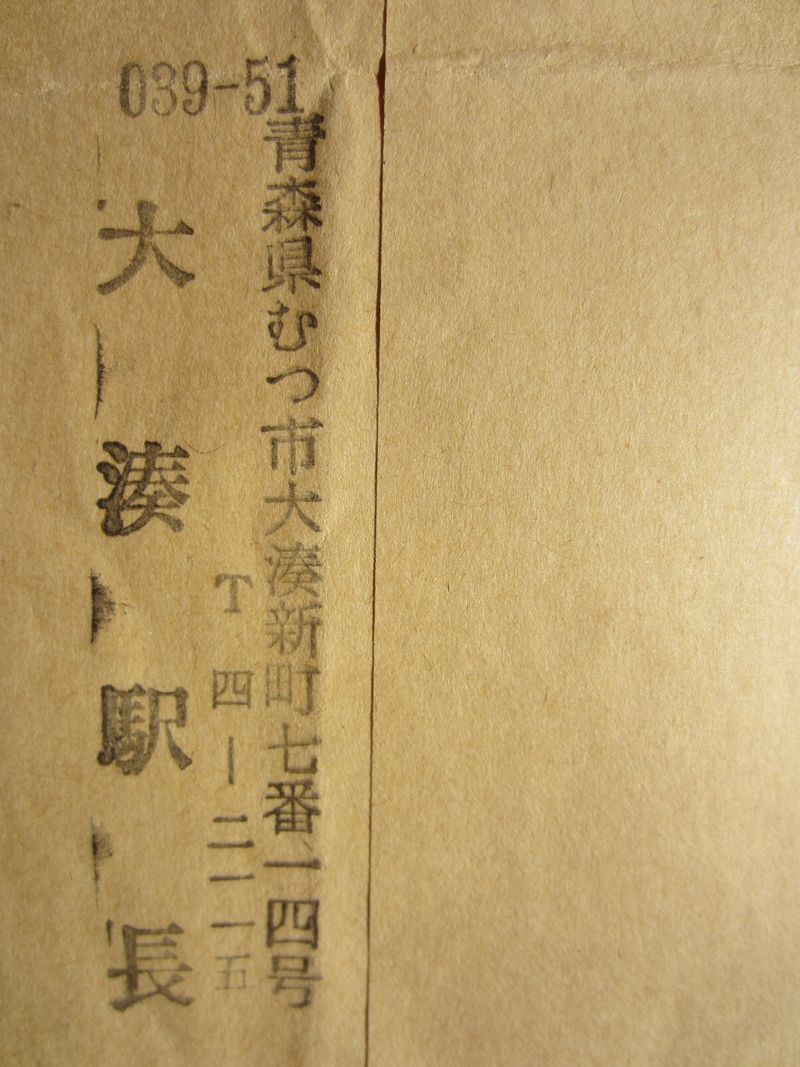 039-51
青森県むつ市大湊新町七番一四号
T四ー二一一五
大湊駅長